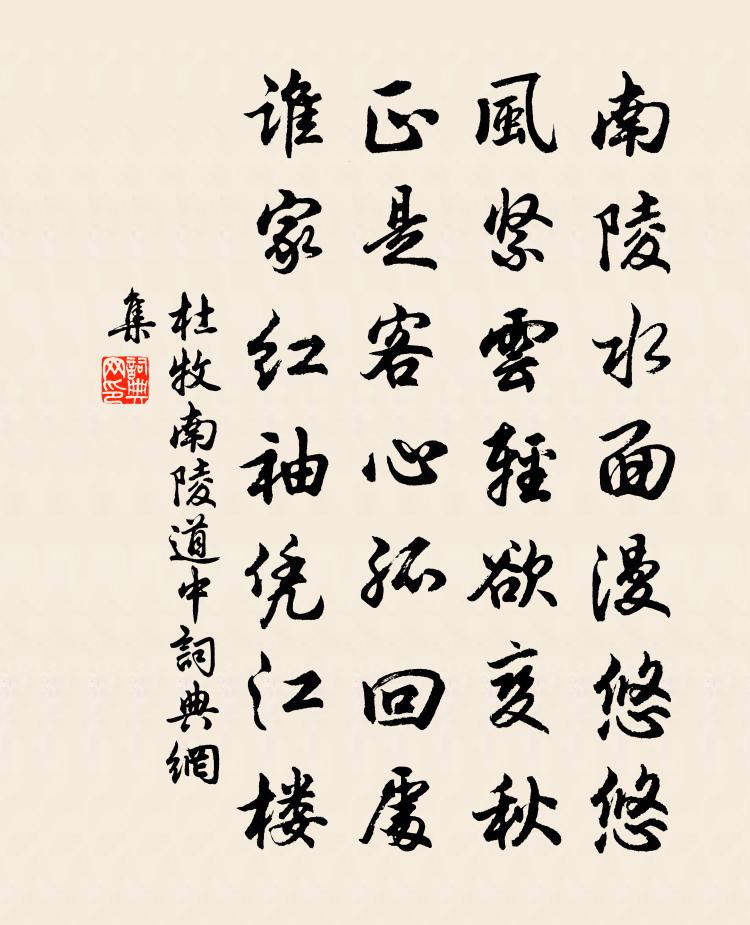 南陵水面漫悠悠
風緊雲輕欲变秋
正是客心孤回處
谁家红袖凭江楼
杜牧南陵道中詞典網
集
詞典
网印